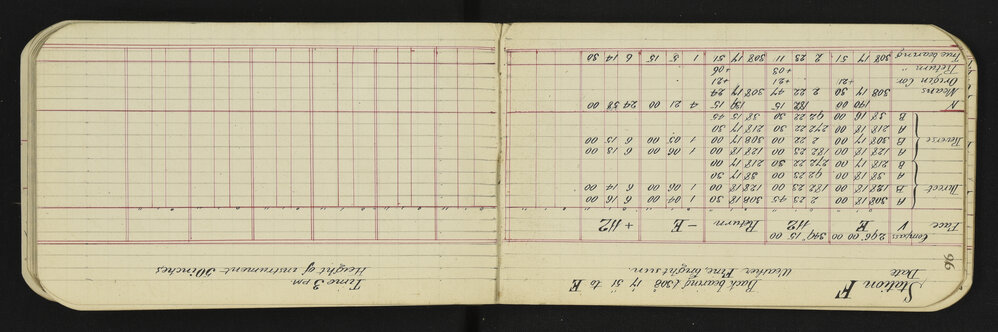 96
Station F Back bearing (308° 17' 51 to E Time 3 PM
Date Weather Fine, bright sun. Height of instrument 50 inches
Compass 296 00 00 349 15 00
Face V E 112 Return - E + 112
Direct A 308 18 00 2 23 45 308 18 30 1 04 00 6 16 00
B 128 18 00 182 23 00 128 18 00 1 06 00 6 14 00
A 38 18 00 92 23 00 38 17 30
B 218 17 00 272 22 30 218 17 00
Reverse A 128 18 00 182 23 00 128 18 00 1 06 00 6 15 00
B 308 17 00 2 22 00 308 17 00 1 05 00 6 15 00
A 218 18 00 272 22 30 218 17 30
B 38 16 00 92 22 30 38 15 45
N 140 00 182 15 139 15 4 21 00 24 58 00
Means 308 17 30 2 22 47 308 17 24
Origin Cor +21 +21 +21
Return " +03 +06
True bearing 308 17 51 2 23 11 308 17 51 1 5 15 6 14 30